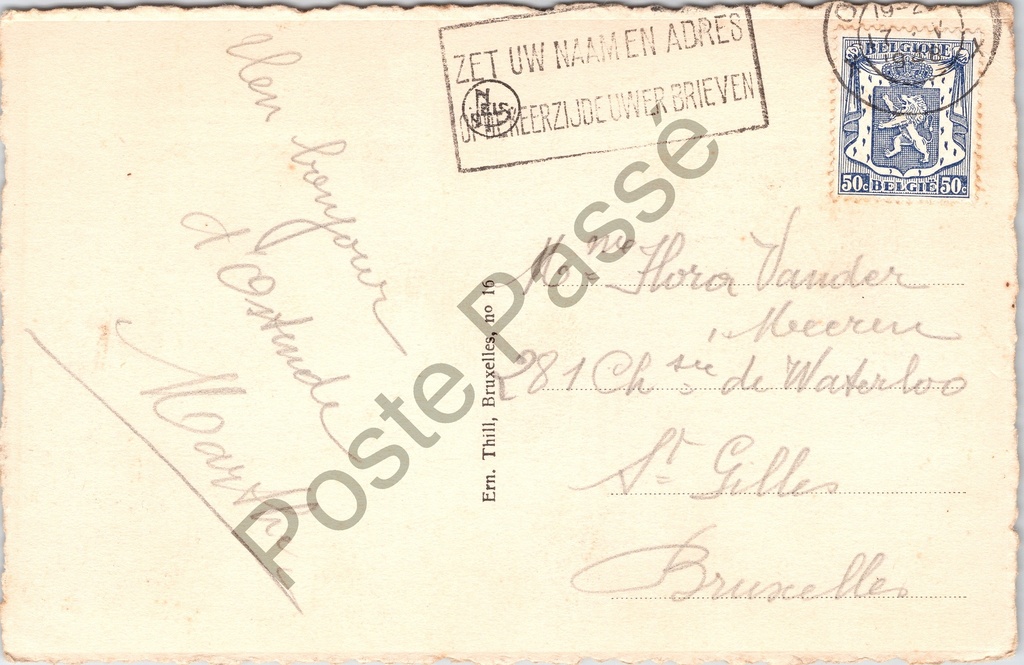 Un bonjour
d'Ostende
ZET UW NAAM EN ADRES
OP DE KEERZIJDE UWER BRIEVEN
NELS
BELGIQUE
50c BELGIË 50c
Mme Flora Vander
Meeren
281 Chsée de Waterloo
St Gilles
Bruxelles
Ern. Thill, Bruxelles, no 16
Poste Passé